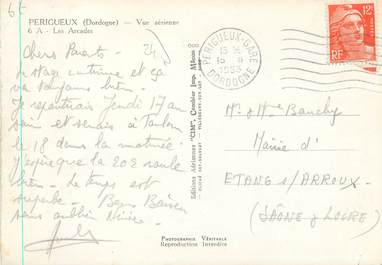 PERIGUEUX (Dordogne) — Vue aérienne
6 A - Les Arcades
Chers Parents
stage continue et ça
va toujours bien.
Je repartirais Jeudi 17 au
soir et serais à Toulon
le 18 dans la matinée.
J'espère que la 203 roule
bien. Le temps est
superbe. Bons Baisers
sans oublier
Editions Aériennes "CIM", Combier Imp. Mâcon
PHOTOGRAPHIE VÉRITABLE
Reproduction Interdite
PERIGUEUX-GARE
15 H
DORDOGNE
12F
RF
Mr & Mme Banchy
Mairie d'
ETANG s/ARROUX
(SAÔNE & LOIRE)